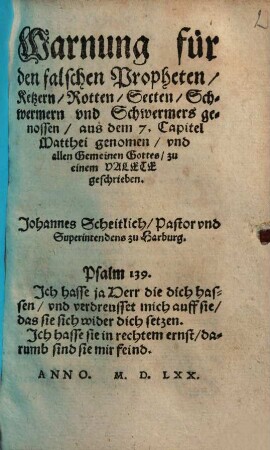 Warnung für
den falschen Propheten /
Ketzern / Rotten / Secten / Sch-
wermern vnd Schwermers ge-
nossen / aus dem 7. Capitel
Matthei genomen / vnd
allen Gemeinen Gottes / zu
einem VALETE
geschrieben.
Johannes Scheitlich / Pastor vnd
Superintendens zu Harburg.
Psalm 139.
Ich hasse ja Herr die dich has-
sen / vnd verdreusset mich auff sie /
das sie sich wider dich setzen.
Ich hasse sie in rechtem ernst / da-
rumb sind sie mir feind.
ANNO. M. D. LXX.